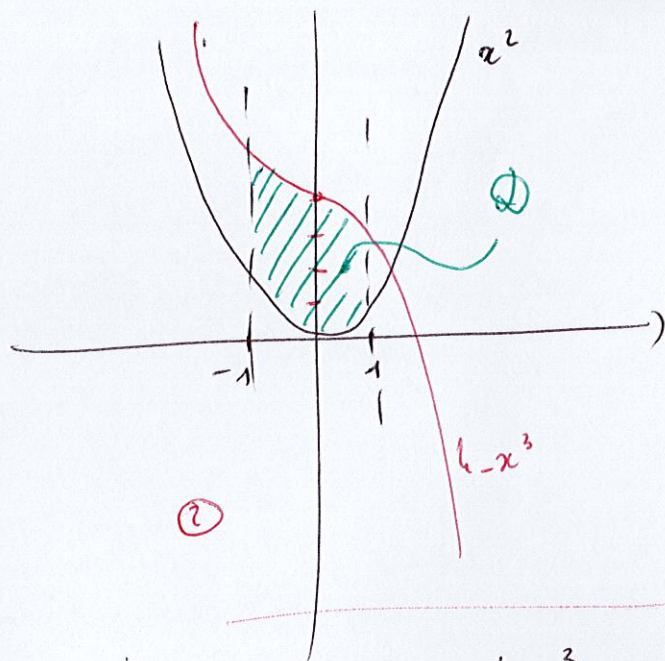 x²
D
-1
1
4-x³
2